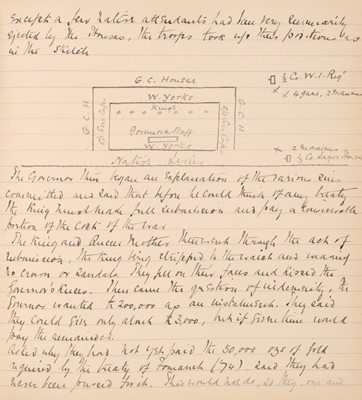 except a few native attendants had been very summarily
ejected by the Houses, the troops took up their positions as
in the sketch
G.C. Houses
W. Yorks
Kings
G C H
G C H
Governor & Staff
W. Yorks
Native Levies
½ Co. W.I. Regt
4 guns, 2 maxims
2 maxims
½ Co Lagos Houses
The Governor then began an explanation of the various sins
committed and said that before he could think of any treaty
the King must make full submission and pay a considerable
portion of the cost of the war
The King and Queen Mother then went through the act of
submission, the King being stripped to the waist and wearing
no crown or sandals. They fell on their faces and kissed the
Governor's knees. Then came the question of indemnity, the
Governor wanted £200,000 as an instalment. They said
they could give only about £2,000, but if given time would
pay the remainder.
Asked why they had not yet paid the 50,000 ozs of gold
required by the treaty of Fomanah ('74) said they had
never been pressed for it. This would not do, so they one and